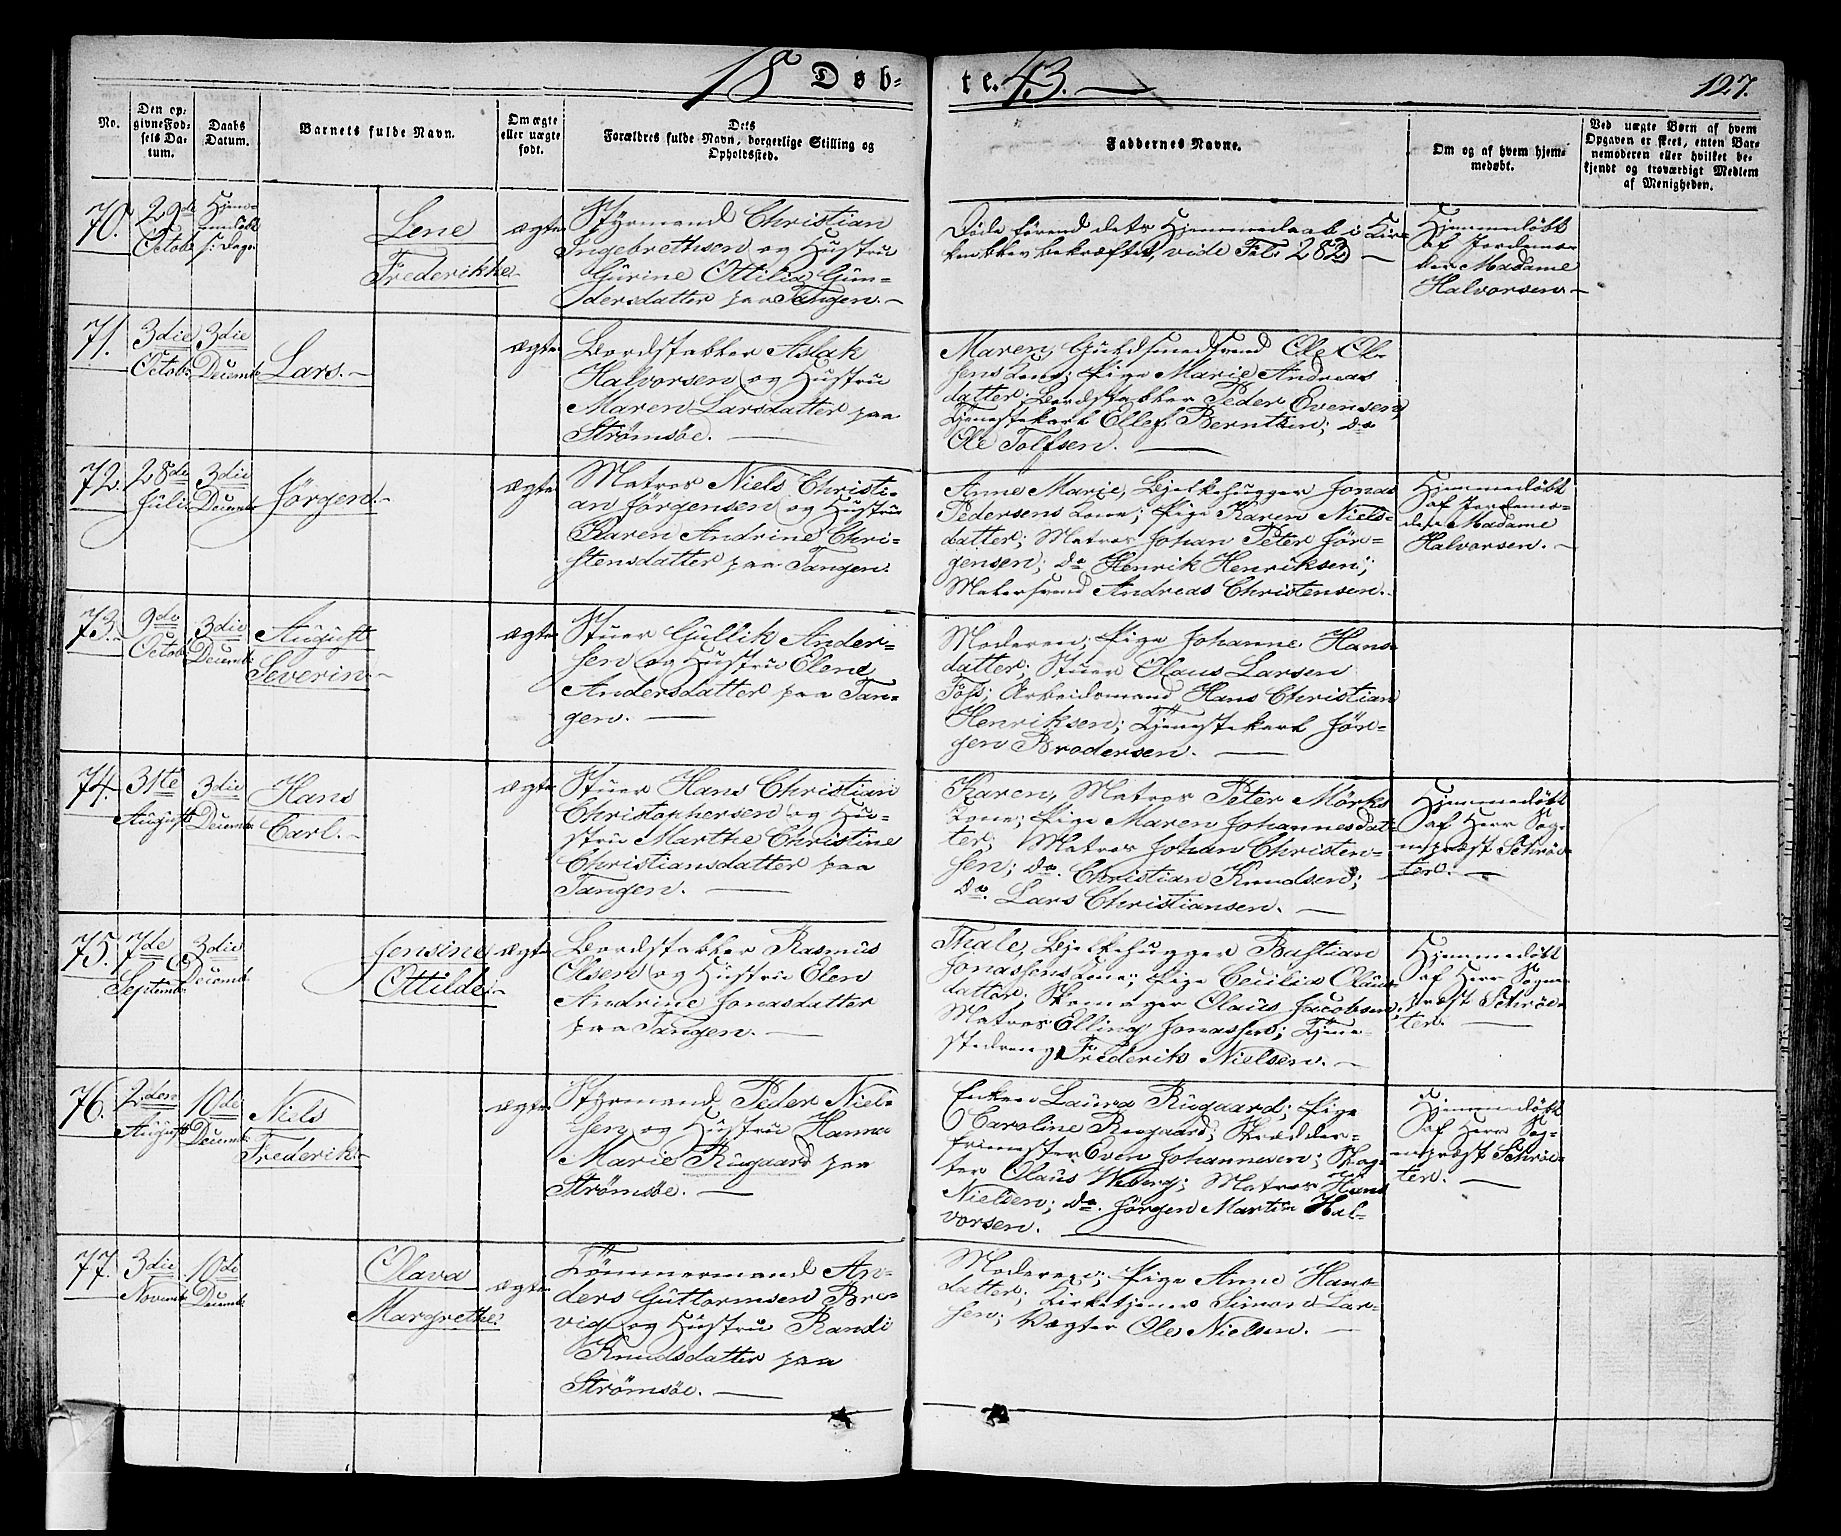 18 Døb-
te. 43. 127.
No.
Den op-
givne Fød-
sels Da-
tum.
Daabs
Datum.
Barnets fulde Navn.
Om ægte
eller uægte
født.
Dets
Forældres fulde Navn, borgerlige Stilling og
Opholdssted.
Faddernes Navne.
Om og af hvem hjem-
medøbt.
Ved uægte Børn af hvem
Opgaven er skeet, enten Bar-
nemoderen eller hvilket be-
kjendt og troværdigt Medlem
af Menigheden.
70.
29de
Octob.
Hjem-
medøbt
s: Dage
Lene
Frederikke.
ægte
Styrmand Christian
Ingebrethsen og Hustru
Gurine Ottilia Gun-
dersdatter paa Tangen.
Døde førend dets Hjemmedaab i Kir-
ken blev bekræftet, vide Fol: 282
Hjemmedøbt
af Jordemo-
der Madame
Halvorsen.
71.
3die
Octob.
3die
Decemb.
Lars.
ægte
Bordstabler Aslak
Halvorsen og Hustru
Maren Larsdatter paa
Strømsøe.
Maren, Guldsmedsvend Ole Ol-
sens Kone; Pige Marie Andreas
datter; Bordstabler Peder Evensen,
Tjenestekarl Ellef Berntsen; do
Ole Tolfsen.
72.
28de
Juli
3die
Decemb.
Jörgen.
ægte
Matros Niels Christi-
an Jörgensen og Hustru
Karen Andrine Chri-
stensdatter paa Tangen.
Anne Marie, Bjelkehugger Jonas
Pedersens Kone; Pige Karen Niels-
datter; Matros Johan Peter Jör-
gensen; do Henrik Henriksen;
Malersvend Andreas Christensen.
Hjemmedøbt
af Jordemo-
der Madame
Halvorsen.
73.
9de
Octob.
3die
Decemb.
August
Severin.
ægte
Stuer Gullik Ander-
sen og Hustru Elene
Andersdatter paa Tan-
gen.
Moderen; Pige Johanne Hans-
datter; Stuer Olaus Larsen
Töfs; Arbeidsmand Hans Christian
Henriksen; Tjenestekarl Jör-
gen Brodersen.
74.
31te
August
3die
Decemb.
Hans
Carl.
ægte
Stuer Hans Christian
Christophersen og Hu-
stru Marthe Christine
Christiansdatter paa
Tangen.
Karen, Matros Peter Mörks
Kone; Pige Maren Johannesdat-
ter; Matros Johan Christen-
sen; do. Christian Knudsen;
Do. Lars Christiansen.
Hjemmedøbt
af Herr Sog-
nepræst Schrøe-
ter.
75.
7de
Septemb.
3die
Decemb.
Jensine
Ottilde.
ægte
Bordstabler Rasmus
Olsen og Hustru Elen
Andrine Jonasdatter
paa Tangen.
Thale, Bjelkehugger Bastian
Jonassens Kone; Pige Cecilia Olaus
datter; Skomager Olaus Jacobsen;
Matros Elling Jonassen; Tjene-
stedreng Frederik Nielsen.
Hjemmedøbt
af Herr Sogne-
præst Schrøe-
ter.
76.
2den
August
10de
Decemb.
Niels
Frederik.
ægte
Styrmand Peder Niel-
sen og Hustru Hanna
Marie Rugaard paa
Strømsøe.
Enken Laura Rugaard; Pige
Caroline Rugaard; Skrædder-
Even Johannesen; Vag-
ter Olaus Wiberg; Matros Hans
Nielsen; do. Jörgen Martin Hal-
vorsen.
Hjemmedøbt
af Herr Sog-
nepræst Schrøe-
ter.
77.
3die
Novemb.
10de
Decemb.
Olava
Margrethe.
ægte
Tömmermand An-
ders Guttormsen Bre-
vig og Hustru Randi
Knudsdatter paa
Strømsøe.
Moderen; Pige Anne Hans-
datter; Kirketjener Simon Lar-
sen; Vægter Ole Nielsen.